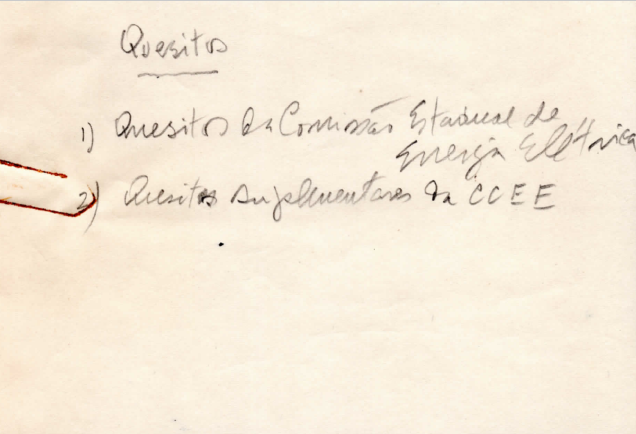 Quesitos
1) Quesitos da Comissão Estadual de
Energia Elétrica
2) Quesitos Suplementares da CCEE